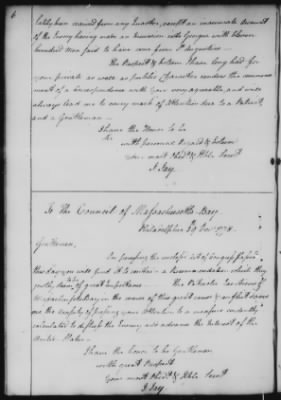 6
lately been received from any Quarter, except an inaccurate Account
of the Enemy having made an incursion into Georgia with Eleven
hundred Men said to have come from St Augustine —
The Respect & Esteem I have long held for
your private as well as publick Character renders the commence
ment of a Correspondence with you very agreeable, and will
always lead me to every mark of Attention due to a Patriot
and a Gentleman —
I have the Honor to be
with personal Regard & Esteem
your most Obedt & Hble Servt
J. Jay
To The Council of Massachusetts Bay
Philadelphia 29 Decr 1778
Gentlemen,
On perusing the enclosed Act of Congress passed
this day you will find it to contain a Recommendation which they
justly deem of great Importance. The
in the course of this great contest
are of passing your Attention to a measure evidently
calculated to distress the Enemy and advance the Interest of the
United States —
I have the honor to be Gentlemen
with great Respect
Your most Obedt & Hble Servt
J. Jay